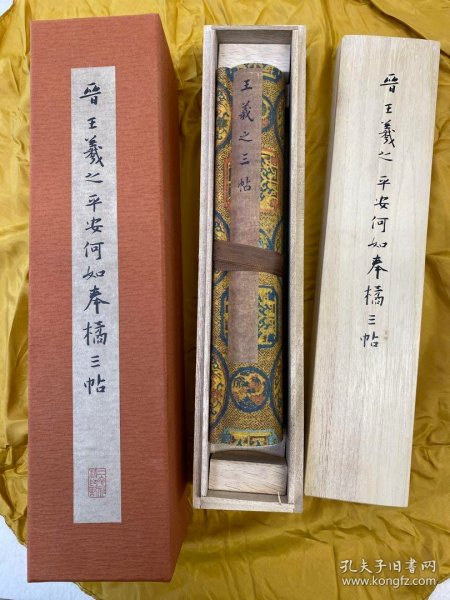 晉王羲之平安何如奉橘三帖
王羲之三帖
晉王羲之平安何如奉橘三帖
孔夫子旧书网
www.kongfz.com